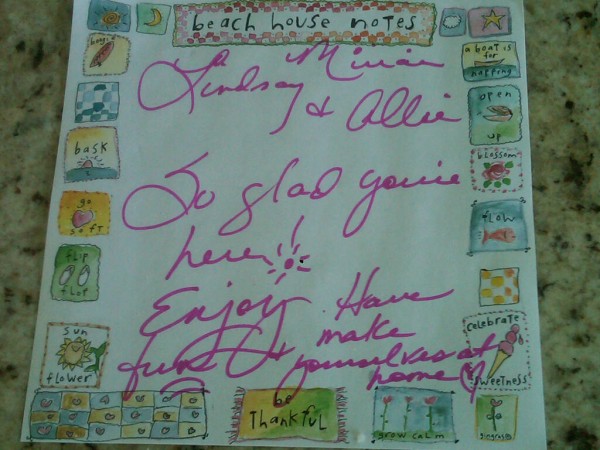 beach house notes
boogie
a boat is for napping
open up
bask
blossom
go soft
flow
flip flop
sun flower
celebrate sweetness
be thankful
grow calm
Lindsay Miriam
& Allie
So glad you're
here!
Enjoy Have
fun & make
yourselves at
home